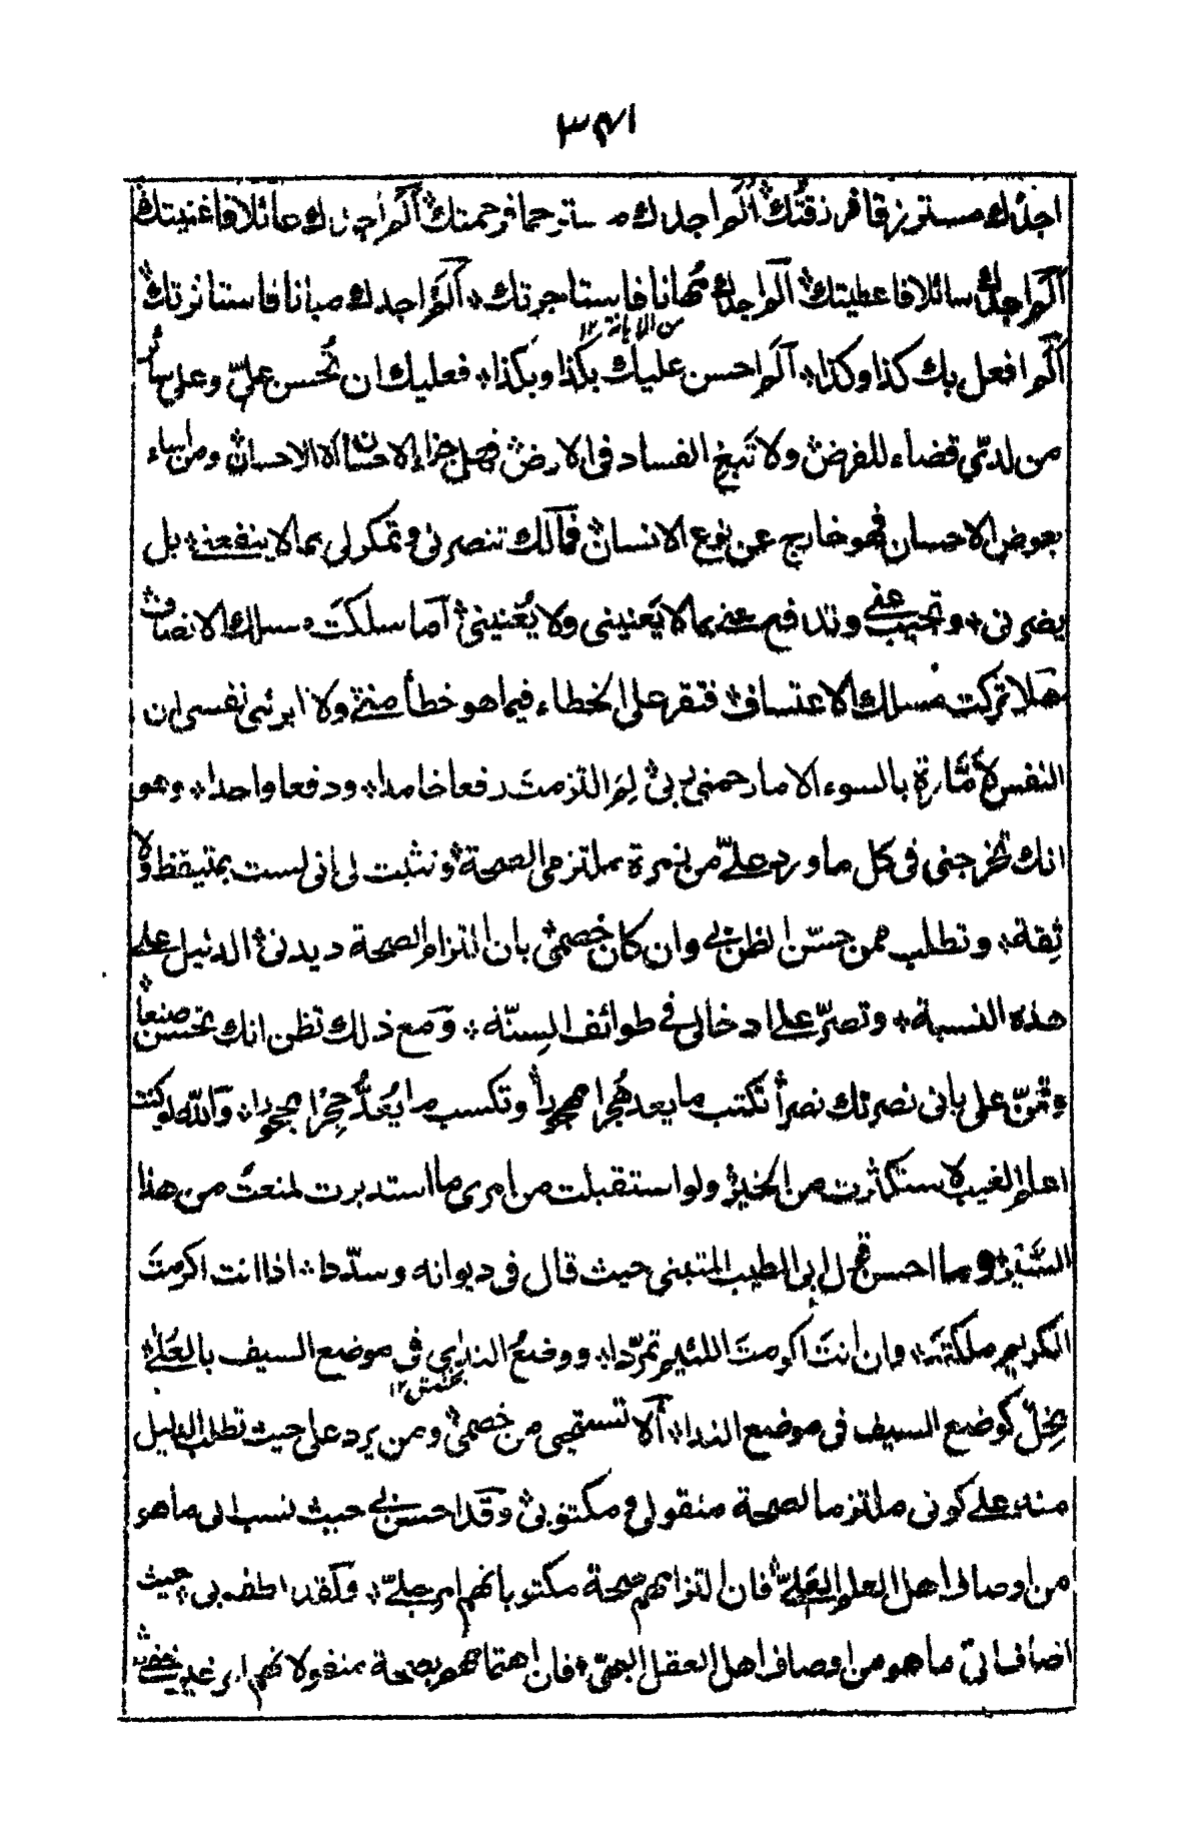 ٣٤١
اجدك مسترزقا فرزقتك ألم اجدك مسترحما فرحمتك ألم اجدك عائلا فاغنيتك
ألم اجدك سائلا فاعطيتك ألم اجدك مهانا فاستاجرتك ألم اجدك مبانا فاستانرتك
من الابانة ١٢
ألم افعل بك كذا وكذا ألم احسن عليك بكذا وبكذا فعليك ان تحسن علي وعلى سائر
من لدي قضاء للفرض ولا تبغ الفساد في الارض فهل جزاء الاحسان الا الاحسان ومن اساء
بعوض الاحسان فهو خارج عن نوع الانسان فمالك تنصرني وتمكر لي بما لا ينفعني بل
يضرني وتجيب عني وتدافع عني بما لا يعنيني ولا يغنيني أما سلكت مسلك الانصاف
هلا تركت مسلك الاعتساف فتقر على الخطاء فيما هو خطأ مني ولا ابرئ نفسي ان
النفس لأمّارة بالسوء الا ما رحمني ربي لِمَ التزمت رفعا خامدا ودفعا واحدا وهو
انك تخرجني في كل ما ورد عليّ من زمرة ملتزمي الصحة وتثبت لي اني لست بمتيقظ ولا
ثِقة وتطلب ممن حسّن الظن بي وان كان خصمي بان التزام الصحة ديدني الدليل على
هذه النسبة وتصرّ على ادخالي في طوائف السِنّه ومع ذلك تظن انك تحسن صنعا
وتمنّ علي باني نصرتك نصرا تكتب ما يعد هُجرا مهجورا وتكسب ما يُعَدُّ حِجرا محجورا والله لو كنت
اعلم الغيب لاستكثرت من الخير ولو استقبلت من امري ما استدبرت لمنعت من هذا
السَّير وما احسن قول ابي الطيب المتبني حيث قال في ديوانه وسدّدا اذا انت اكرمت
الكريم ملكته وان انت اكرمت اللئيم تمرّدا ووضع الندى في موضع السيف بالعلى
بخشش ١٢
مخلّ كوضع السيف في موضع الندا ألا تستحيي من خصمي ومن يرد علي حيث تطلب الدليل
منه على كوني ملتزما لصحة منقولي ومكتوبي وقد احسن بي حيث نسب الى ما هو
من اوصاف اهل العلم العَليّ فان التزامهم صحة مكتوباتهم امر جليّ ولقد الطف بي حيث
اضاف اليّ ما هو من اوصاف اهل العقل البهيّ فان اهتمامهم بصحة منقولاتهم امر غير خفي